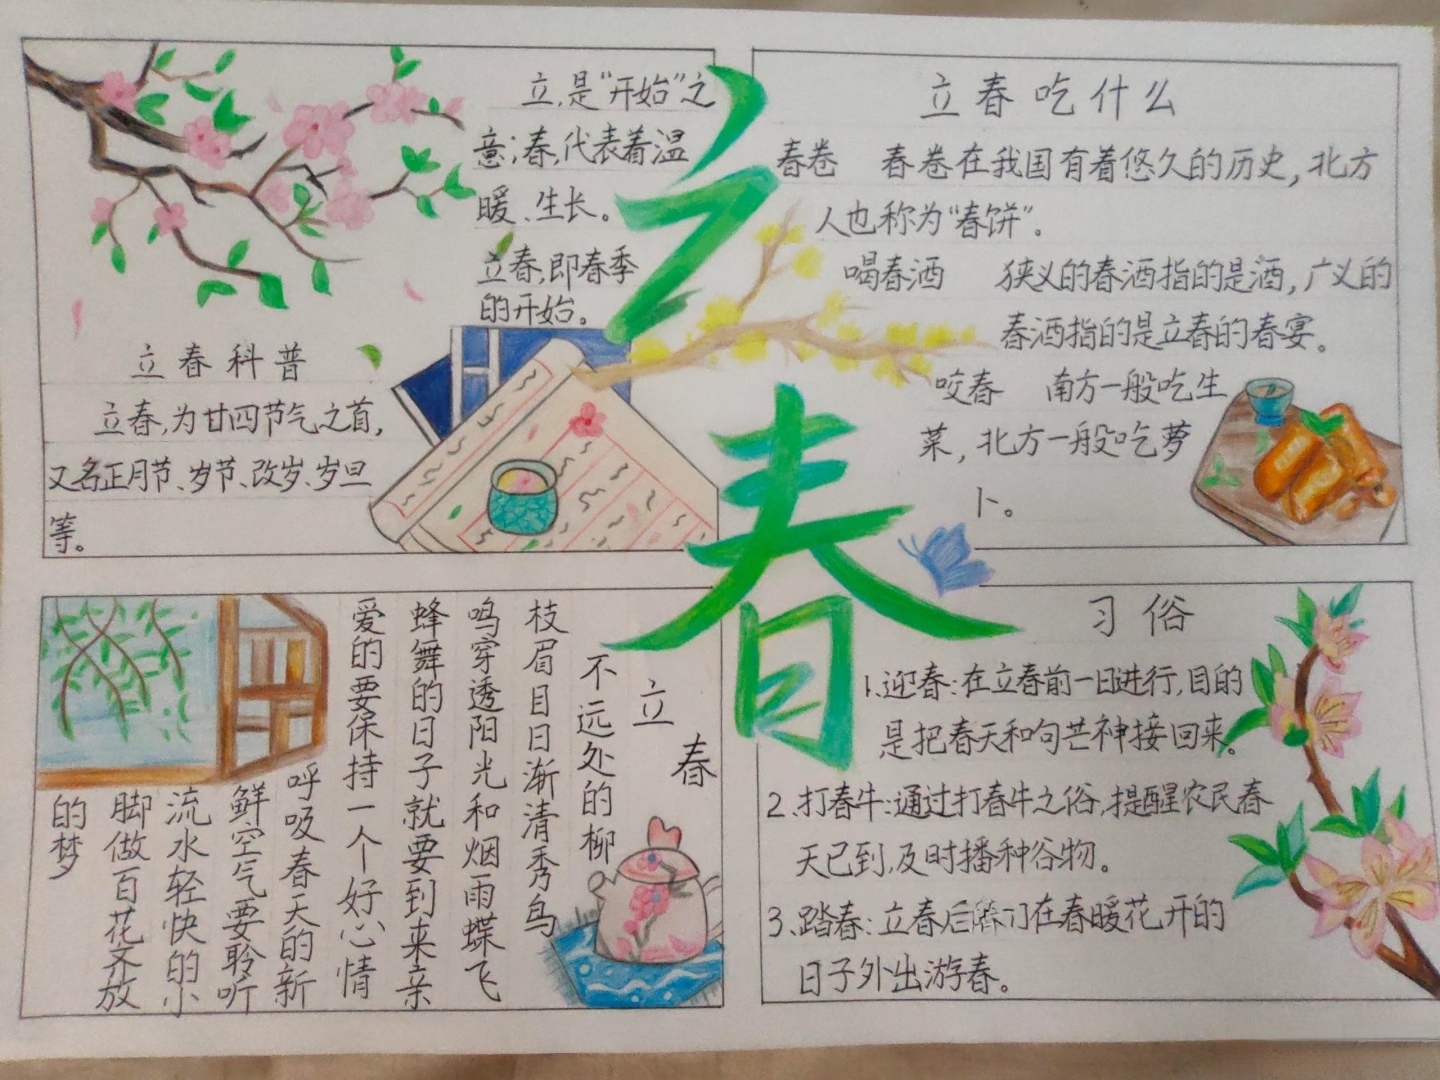 立春
立,是“开始”之
意;春,代表着温
暖、生长。
立春,即春季
的开始。
立春科普
立春,为廿四节气之首,
又名正月节、岁节、改岁、岁旦
等。
立春吃什么
春卷 春卷在我国有着悠久的历史,北方
人也称为“春饼”。
喝春酒 狭义的春酒指的是酒,广义的
春酒指的是立春的春宴。
咬春 南方一般吃生
菜,北方一般吃萝
卜。
立春
不远处的柳
枝眉目日渐清秀鸟
鸣穿透阳光和烟雨蝶飞
蜂舞的日子就要到来亲
爱的要保持一个好心情
呼吸春天的新
鲜空气要聆听
流水轻快的小
脚做百花齐放
的梦
习俗
1.迎春:在立春前一日进行,目的
是把春天和句芒神接回来。
2.打春牛:通过打春牛之俗,提醒农民春
天已到,及时播种谷物。
3、踏春:立春后在春暖花开的
日子外出游春。